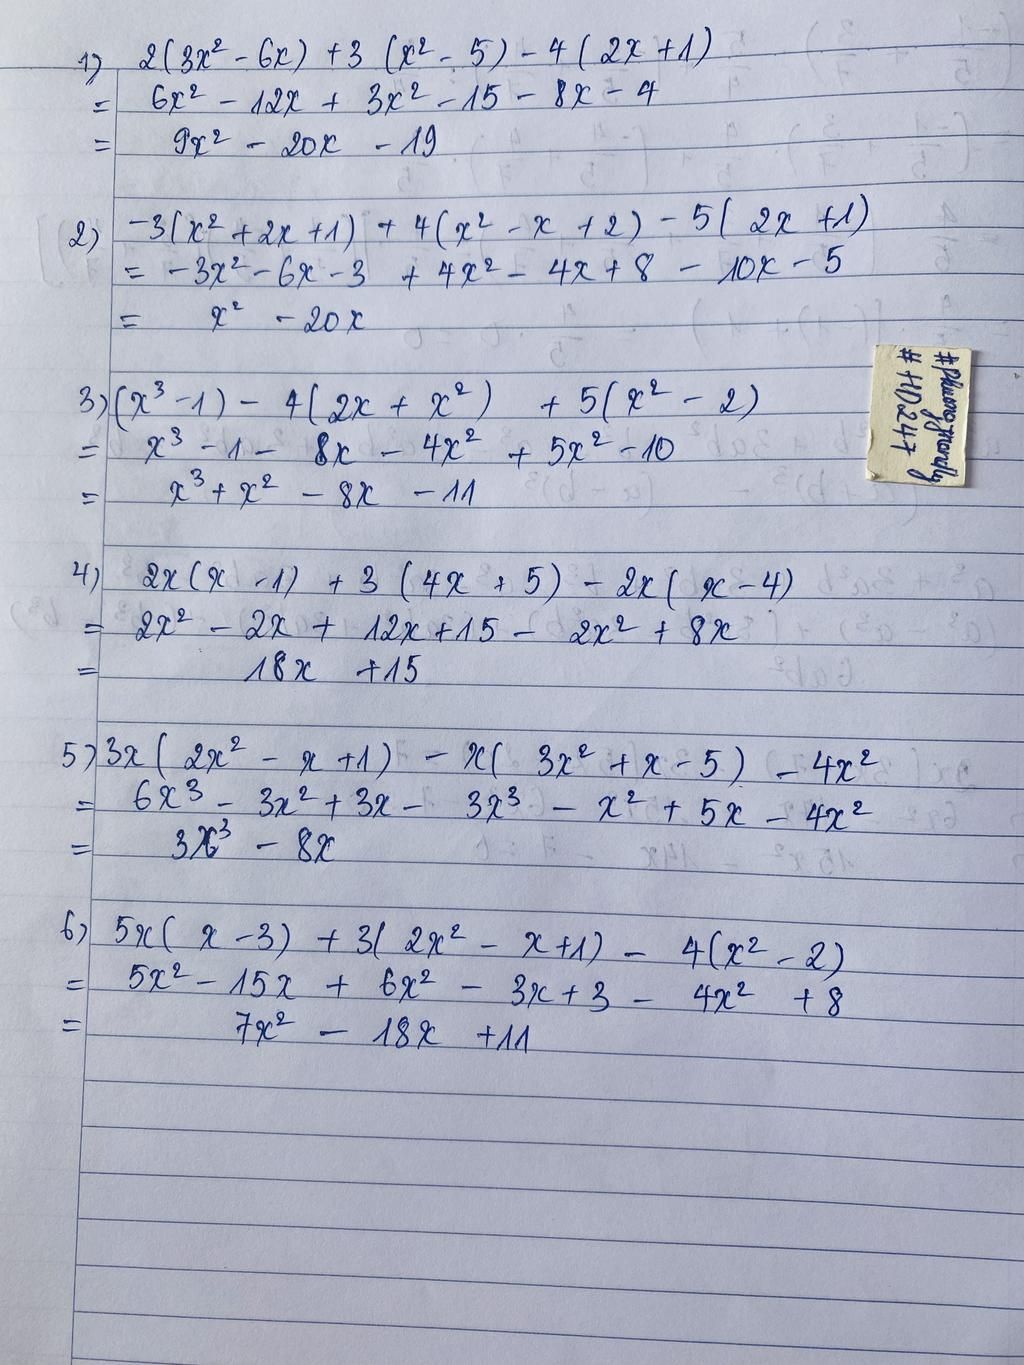 1) 2(3x² - 6x) + 3 (x² - 5) - 4 (2x + 1)
= 6x² - 12x + 3x² - 15 - 8x - 4
= 9x² - 20x - 19
2) -3(x² + 2x + 1) + 4(x² - x + 2) - 5(2x + 1)
= -3x² - 6x - 3 + 4x² - 4x + 8 - 10x - 5
= x² - 20x
3) (x³ - 1) - 4(2x + x²) + 5(x² - 2)
= x³ - 1 - 8x - 4x² + 5x² - 10
= x³ + x² - 8x - 11
#HD247
4) 2x(x - 1) + 3 (4x + 5) - 2x(x - 4)
= 2x² - 2x + 12x + 15 - 2x² + 8x
= 18x + 15
5) 3x(2x² - x + 1) - x(3x² + x - 5) - 4x²
= 6x³ - 3x² + 3x - 3x³ - x² + 5x - 4x²
= 3x³ - 8x
6) 5x(x - 3) + 3(2x² - x + 1) - 4(x² - 2)
= 5x² - 15x + 6x² - 3x + 3 - 4x² + 8
= 7x² - 18x + 11